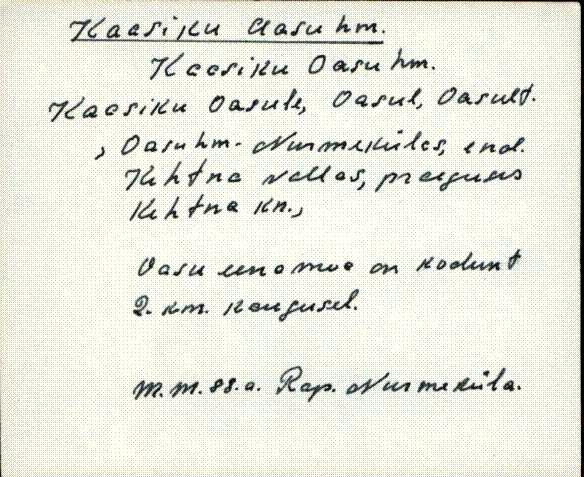 Kaasiku Aasu hm.
Kaasiku Oasu hm.
Kaasiku Oasule, Oasul, Oasult.
, Oasu hm. Nurmekülas, end.
Kehtna vallas, praeguses
Kehtna kn.,
Oasu einamoa on kodunt
2. km. kaugusel.
M.M. 88.a. Rap. Nurmeküla.